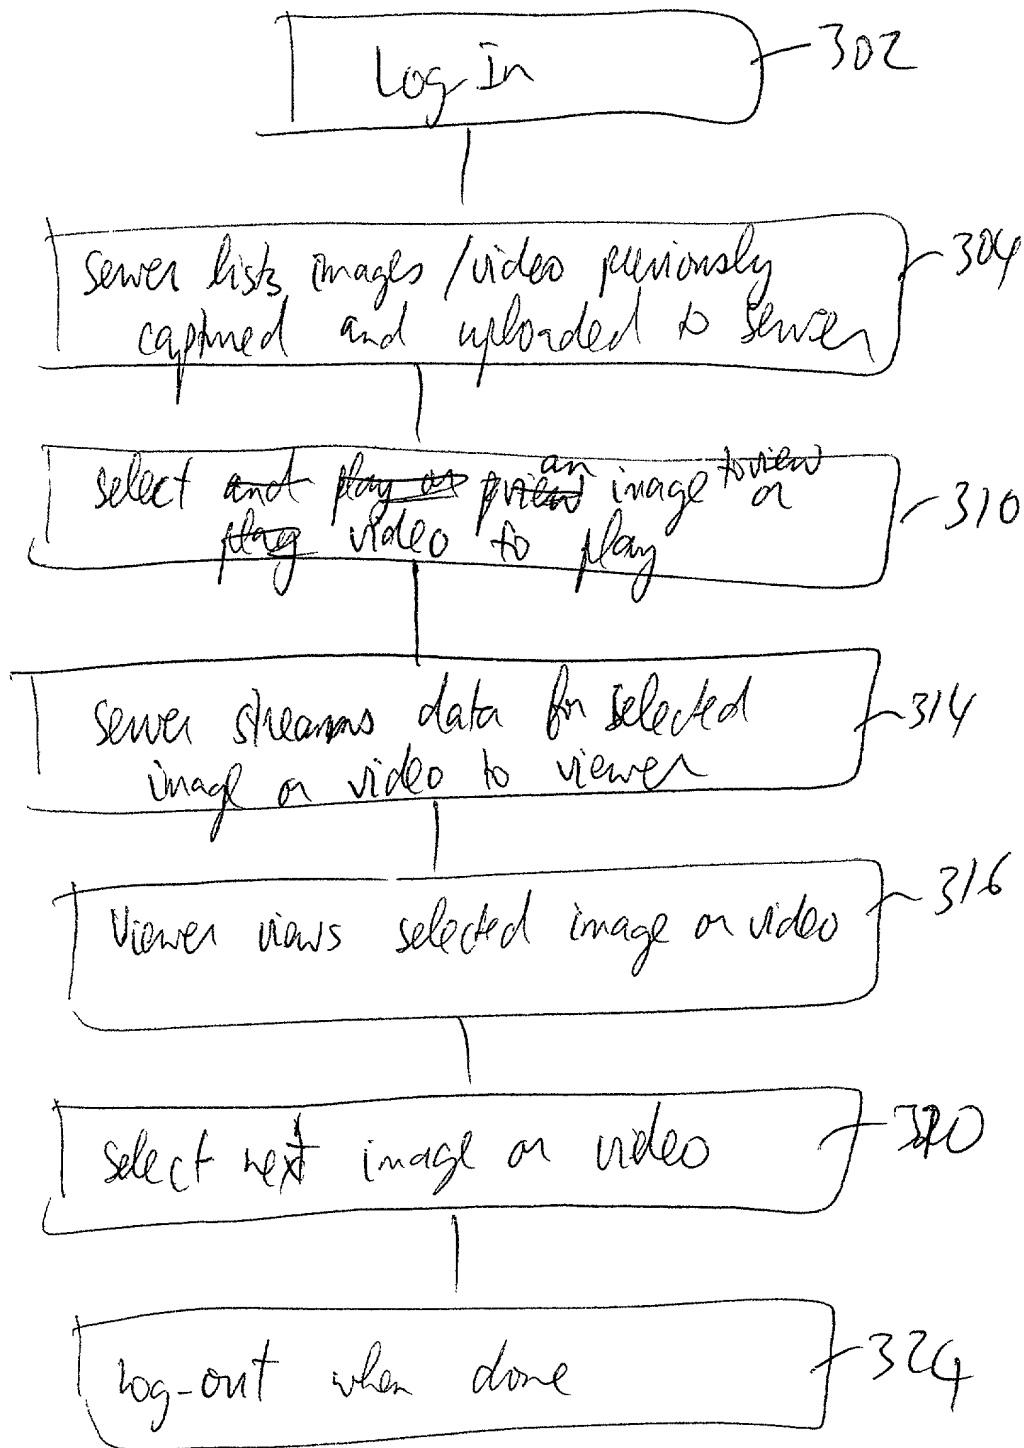 Log-In 302
server lists images / video previously 304
captured and uploaded to server
select ~~and~~ ~~play or~~ ~~view~~ an image to view or 310
~~play~~ video to play
server streams data for selected 314
image or video to viewer
Viewer views selected image or video 316
select next image or video 320
log-out when done 324